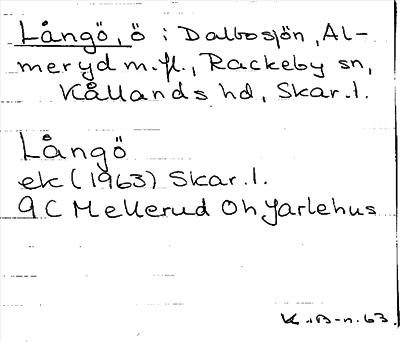 Långö, ö i Dalbosjön, Al-
meryd m.fl., Rackeby sn,
Kållands hd, Skar.l.
Långö
ek (1963) Skar.l.
9C Mellerud Oh Jarlehus
K.B-n. 63.